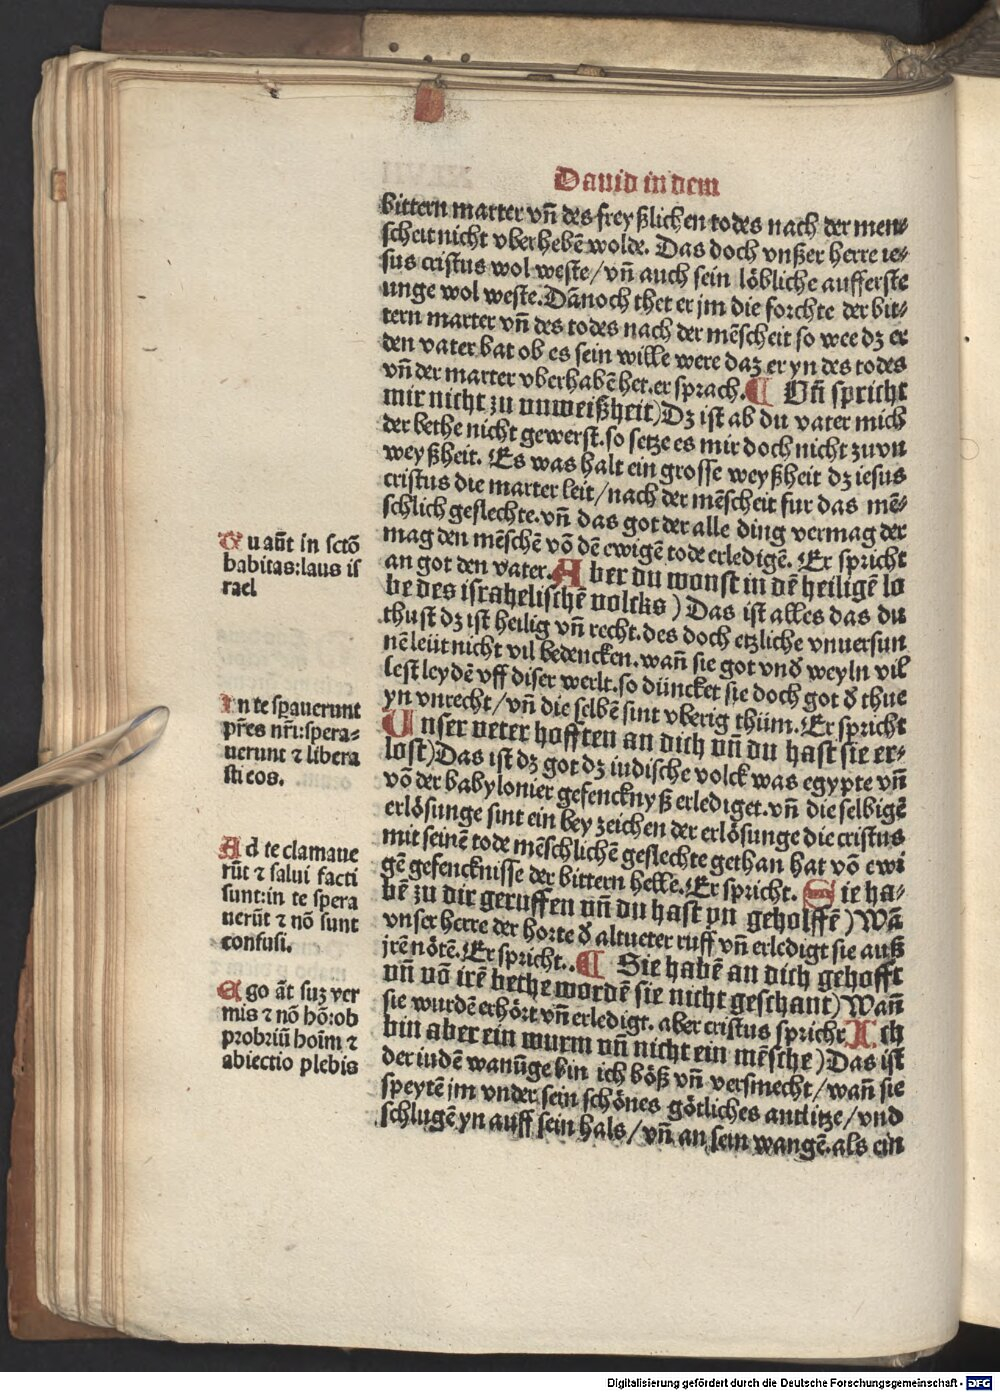 Dauid in dem
bittern marter vn̄ des freyßlichen todes nach der men⸗
scheit nicht vberhebē wolde. Das doch vnßer herre ie⸗
sus cristus wol weste/vn̄ auch sein löbliche aufferste
unge wol weste.Dānoch thet er jm die forchte der bit⸗
tern marter vn̄ des todes nach der mēscheit so wee dz er
den vater bat ob es sein wille were daz er yn des todes
vn̄ der marter vberhabē het.er sprach.¶ Vn̄ spricht
mir nicht zu vnweißheit)Dz ist ab du vater mich
der bethe nicht gewerst.so setze es mir doch nicht zu vn
weyßheit. Es was halt ein grosse weyßheit dz iesus
cristus die marter leit/nach der mēscheit fur das mē⸗
schlich geslechte.vn̄ das got der alle ding vermag der
mag den mēschē vō dē ewigē tode erledigē. Er spricht
an got den vater.Aber du wonst in dē heiligē lo
be des israhelischē volcks) Das ist alles das du
thust dz ist heilig vn̄ recht.des doch etzliche vnuersun
nē leüt nicht vil bedencken.wan̄ sie got vnd̄ weyln vil
lest leydē vff diser werlt.so düncket sie doch got d̄ thue
yn vnrecht/vn̄ die selbē sint vberig thüm.Er spricht
Unser veter hofften an dich vn̄ du hast sie er⸗
lost)Das ist dz got dz iudische volck was egypte vn̄
vō der babylonier gefencknyß erlediget.vn̄ die selbigē
erlösunge sint ein bey zeichen der erlösunge die cristus
mit seinē tode mēschlichē geslechte gethan hat vō ewi
gē gefencknisse der bittern helle.Er spricht. Sie ha⸗
bē zu dir geruffen vn̄ du hast yn geholffē)Wā
vnser herre der horte d̄ altueter ruff vn̄ erledigt sie auß
jrē nötē.Er spricht..¶ Sie habē an dich gehofft
vn̄ vō irē bethe wordē sie nicht geschant)Wan̄
sie wurdē erhört vn̄ erledigt. aber cristus sprichr Ich
bin aber ein wurm vn̄ nicht ein mēsche)Das ist
der iudē wanūge bin ich böß vn̄ versmecht/wan̄ sie
speytē jm vnder sein schönes götliches antlitze/vnd
schlugē yn auff sein hals/vn̄ an sein wangē.als ein
Tu aūt in sctō
habitas:laus is
rael
In te spauerunt
pr̄es nr̄i:spera⸗
uerunt ⁊ libera
sti eos.
Ad te clamaue
rūt ⁊ salui facti
sunt:in te spera
uerūt ⁊ nō sunt
confusi.
Ego āt suꝫ ver
mis ⁊ nō hō:ob
probriū hoim ⁊
abiectio plebis
Digitalisierung gefördert durch die Deutsche Forschungsgemeinschaft - DFG